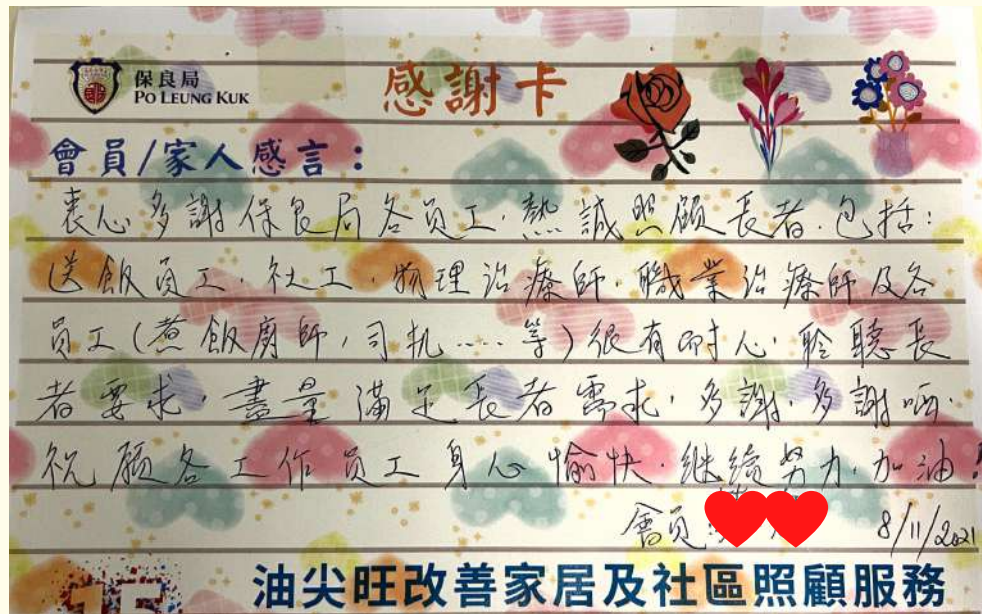 保良局
PO LEUNG KUK
感謝卡
會員/家人感言：
衷心多謝保良局各員工，熱誠照顧長者．包括：
送飯員工，社工，物理治療師，職業治療師及各
員工(煮飯廚師，司机……等)很有耐心，聆聽長
者要求，盡量滿足長者需求，多謝，多謝晒．
祝願各工作員工身心愉快．继續努力，加油！
會員：
8/11/2021
油尖旺改善家居及社區照顧服務